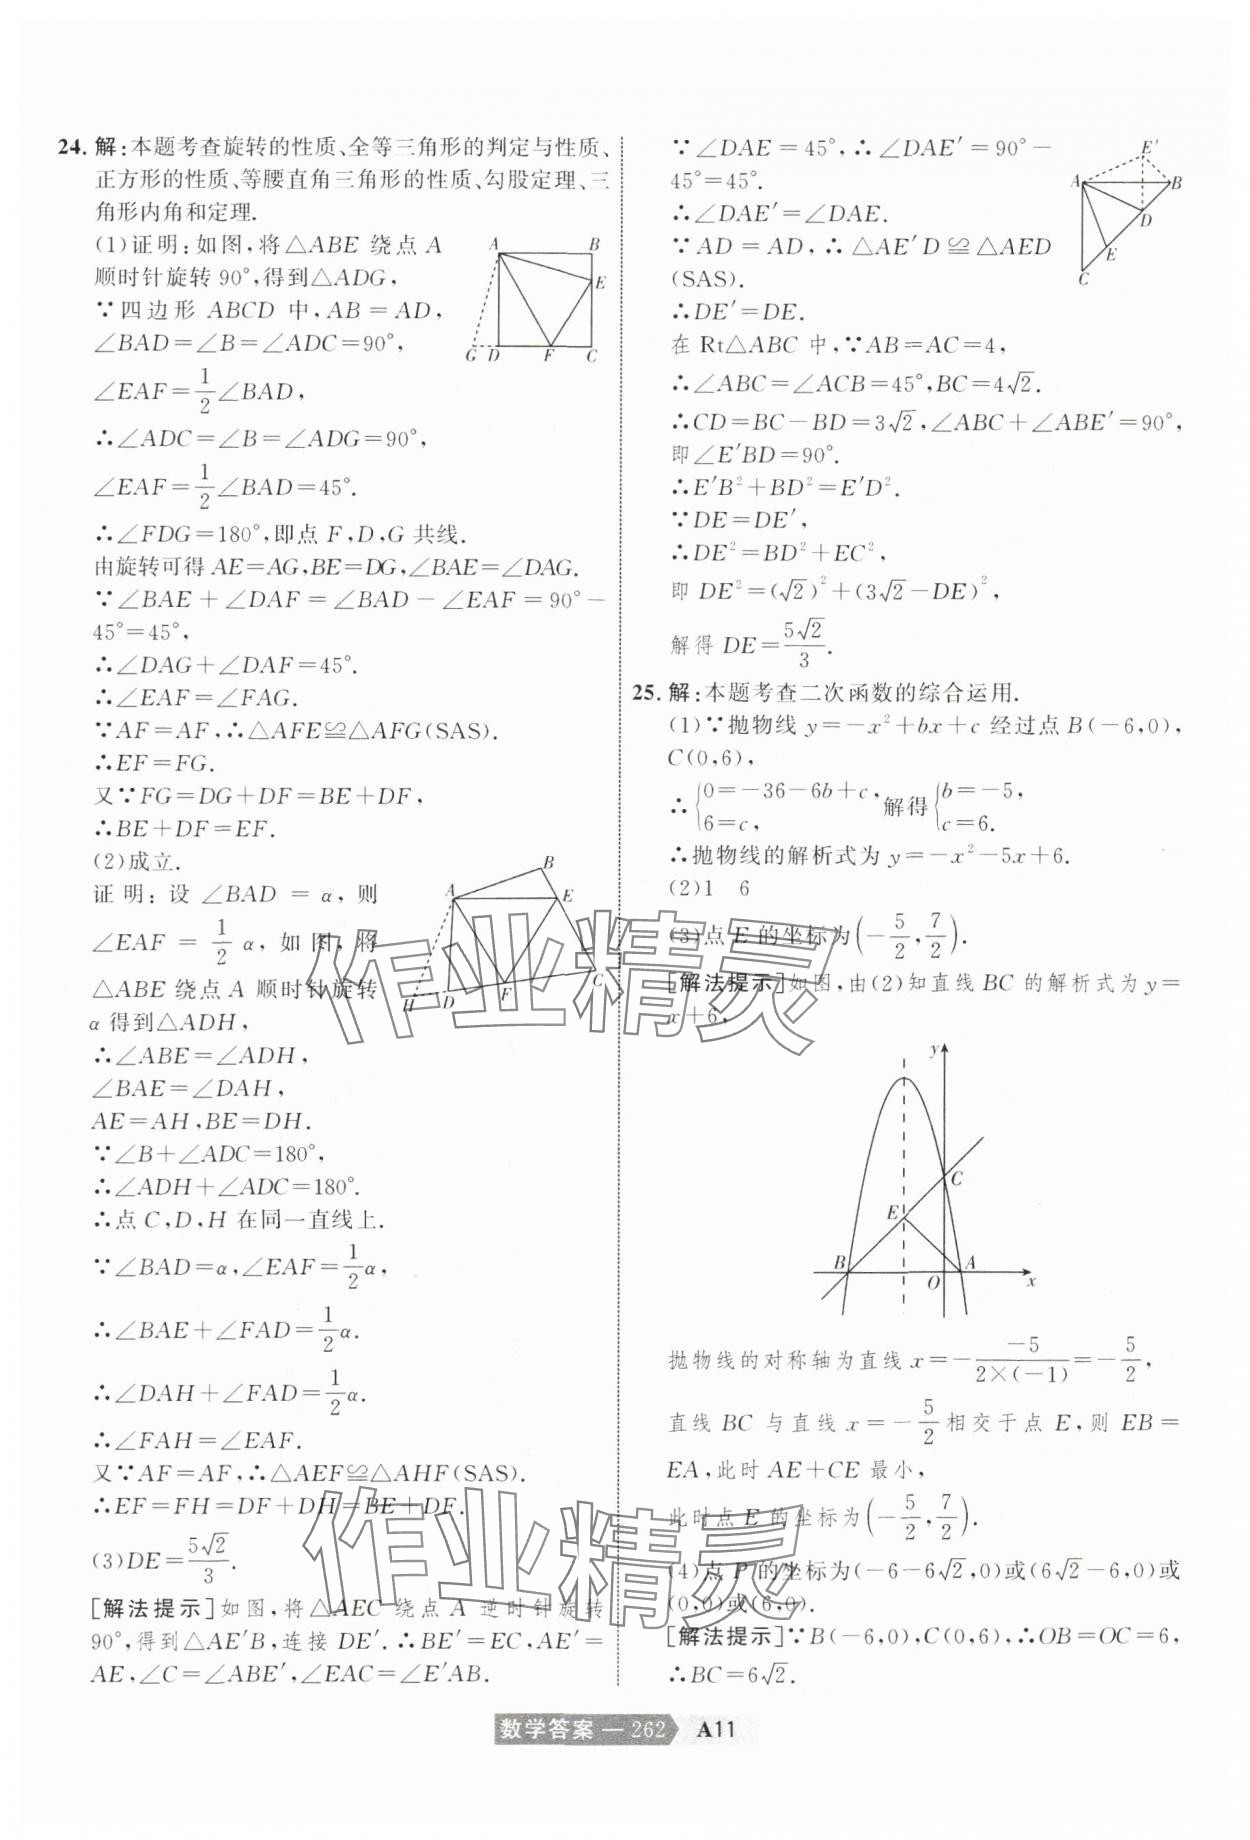 24. 解:本题考查旋转的性质、全等三角形的判定与性质、
正方形的性质、等腰直角三角形的性质、勾股定理、三
角形内角和定理.
(1)证明:如图,将△ABE 绕点 A
顺时针旋转 90°,得到△ADG,
∵四边形 ABCD 中,AB=AD,
∠BAD=∠B=∠ADC=90°,
∠EAF=\frac{1}{2}∠BAD,
∴∠ADC=∠B=∠ADG=90°,
∠EAF=\frac{1}{2}∠BAD=45°.
∴∠FDG=180°,即点 F,D,G 共线.
由旋转可得 AE=AG,BE=DG,∠BAE=∠DAG.
∵∠BAE+∠DAF=∠BAD-∠EAF=90°-
45°=45°,
∴∠DAG+∠DAF=45°.
∴∠EAF=∠FAG.
∵AF=AF,∴△AFE≌△AFG(SAS).
∴EF=FG.
又∵FG=DG+DF=BE+DF,
∴BE+DF=EF.
A B E G D F C
(2)成立.
证明:设∠BAD=α,则
∠EAF=\frac{1}{2}α,如图,将
△ABE 绕点 A 顺时针旋转
α得到△ADH,
∴∠ABE=∠ADH,
∠BAE=∠DAH,
AE=AH,BE=DH.
∵∠B+∠ADC=180°,
∴∠ADH+∠ADC=180°.
∴点 C,D,H 在同一直线上.
∵∠BAD=α,∠EAF=\frac{1}{2}α,
∴∠BAE+∠FAD=\frac{1}{2}α.
∴∠DAH+∠FAD=\frac{1}{2}α.
∴∠FAH=∠EAF.
又∵AF=AF,∴△AEF≌△AHF(SAS).
∴EF=FH=DF+DH=BE+DF.
A B E H D F C
(3)DE=\frac{5√2}{3}.
[解法提示]如图,将△AEC 绕点 A 逆时针旋转
90°,得到△AE′B,连接 DE′.∴BE′=EC,AE′=
AE,∠C=∠ABE′,∠EAC=∠E′AB.
∵∠DAE=45°,∴∠DAE′=90°-
45°=45°.
∴∠DAE′=∠DAE.
∵AD=AD,∴△AE′D≌△AED
(SAS).
∴DE′=DE.
A E′ B D E C
在 Rt△ABC 中,∵AB=AC=4,
∴∠ABC=∠ACB=45°,BC=4√2.
∴CD=BC-BD=3√2,∠ABC+∠ABE′=90°,
即∠E′BD=90°.
∴E′B²+BD²=E′D².
∵DE=DE′,
∴DE²=BD²+EC²,
即 DE²=(√2)²+(3√2-DE)²,
解得 DE=\frac{5√2}{3}.
25. 解:本题考查二次函数的综合运用.
(1)∵抛物线 y=-x²+bx+c 经过点 B(-6,0),
C(0,6),
∴{0=-36-6b+c, 6=c, 解得{b=-5, c=6.
∴抛物线的解析式为 y=-x²-5x+6.
(2)1 6
(3)点 E 的坐标为(-\frac{5}{2},\frac{7}{2}).
[解法提示]如图,由(2)知直线 BC 的解析式为 y=
x+6,
y C E B O A x
抛物线的对称轴为直线 x=-\frac{-5}{2×(-1)}=-\frac{5}{2},
直线 BC 与直线 x=-\frac{5}{2}相交于点 E,则 EB=
EA,此时 AE+CE 最小,
此时点 E 的坐标为(-\frac{5}{2},\frac{7}{2}).
(4)点 P 的坐标为(-6-6√2,0)或(6√2-6,0)或
(0,0)或(6,0).
[解法提示]∵B(-6,0),C(0,6),∴OB=OC=6,
∴BC=6√2.
作业精灵
作业精灵
数学答案 — 262 A11